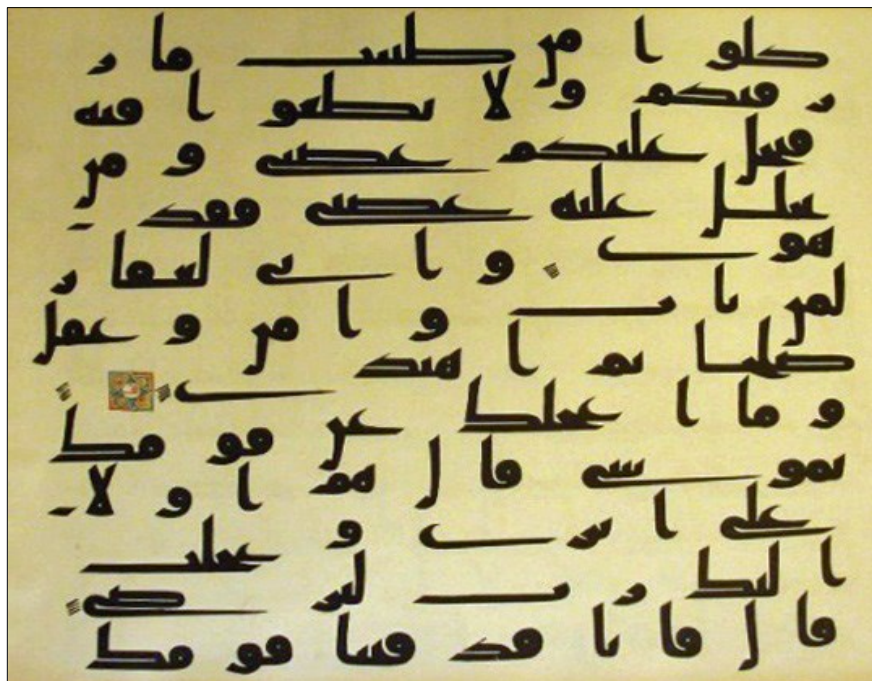 كلوا من طيبت ما ر
زقنكم و لا تطغوا فيه
فيحل عليكم غضبي و من
يحلل عليه غضبي فقد
هوى و اني لغفار
لمن تاب و امن و عمل
صلحا ثم اهتدى
و ما اعجلك عن قومك
يموسى قال هم اولا
على اثري و عجلت
اليك رب لترضى
قال فانا قد فتنا قومك